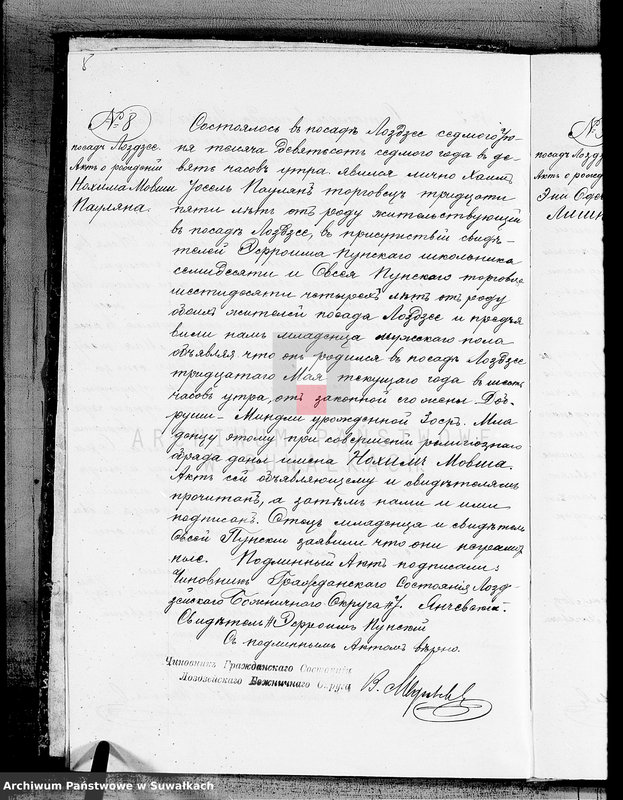 8
№ 8
посадъ Лоздзее.
Актъ о рожденіи
Нохима-Мовши
Пауляна.
Состоялось въ посадѣ Лоздзее седьмого Ію-
ня тысяча девятьсотъ седьмого года въ де-
вять часовъ утра. явился лично Хаимъ
Іосель Паулянъ торговецъ тридцати
пяти лѣтъ отъ роду жительствующій
въ посадѣ Лоздзее, въ присутствіи свидѣ-
телей Эфроима Пунскаго школьника
семидесяти и Овсея Пунскаго торговца
шестидесяти четырехъ лѣтъ отъ роду
обоихъ жителей посада Лоздзее и предъя
вили намъ младенца мужескаго пола
объявляя что онъ родился въ посадѣ Лоздзее
тридцатаго Мая текущаго года въ шесть
часовъ утра, отъ законной его жены
Миндли урожденной Зосръ. Мла
денцу этому при совершеніи религіознаго
обряда даны имена Нохимъ Мовша.
Актъ сей объявляющему и свидѣтелямъ
прочитанъ, а затѣмъ нами и ими
подписанъ. Отецъ младенца и свидѣтель
Овсей Пунскій заявили что они неграмот
ные. Подлинный Актъ подписали:
Чиновникъ Гражданскаго Состоянія Лозд-
зейскаго Божничнаго Округа Янчевскій
Свидѣтель Эфроимъ Пунскій
Съ подлиннымъ Актомъ вѣрно.
Чиновникъ Гражданскаго Состоянія
Лоздзейскаго Божничнаго Округа
В.
№
посадъ Лоздз
Актъ о рожде
Лишн
ARCHIWUM PAŃSTWOWE
W SUWAŁKACH
Archiwum Państwowe w Suwałkach